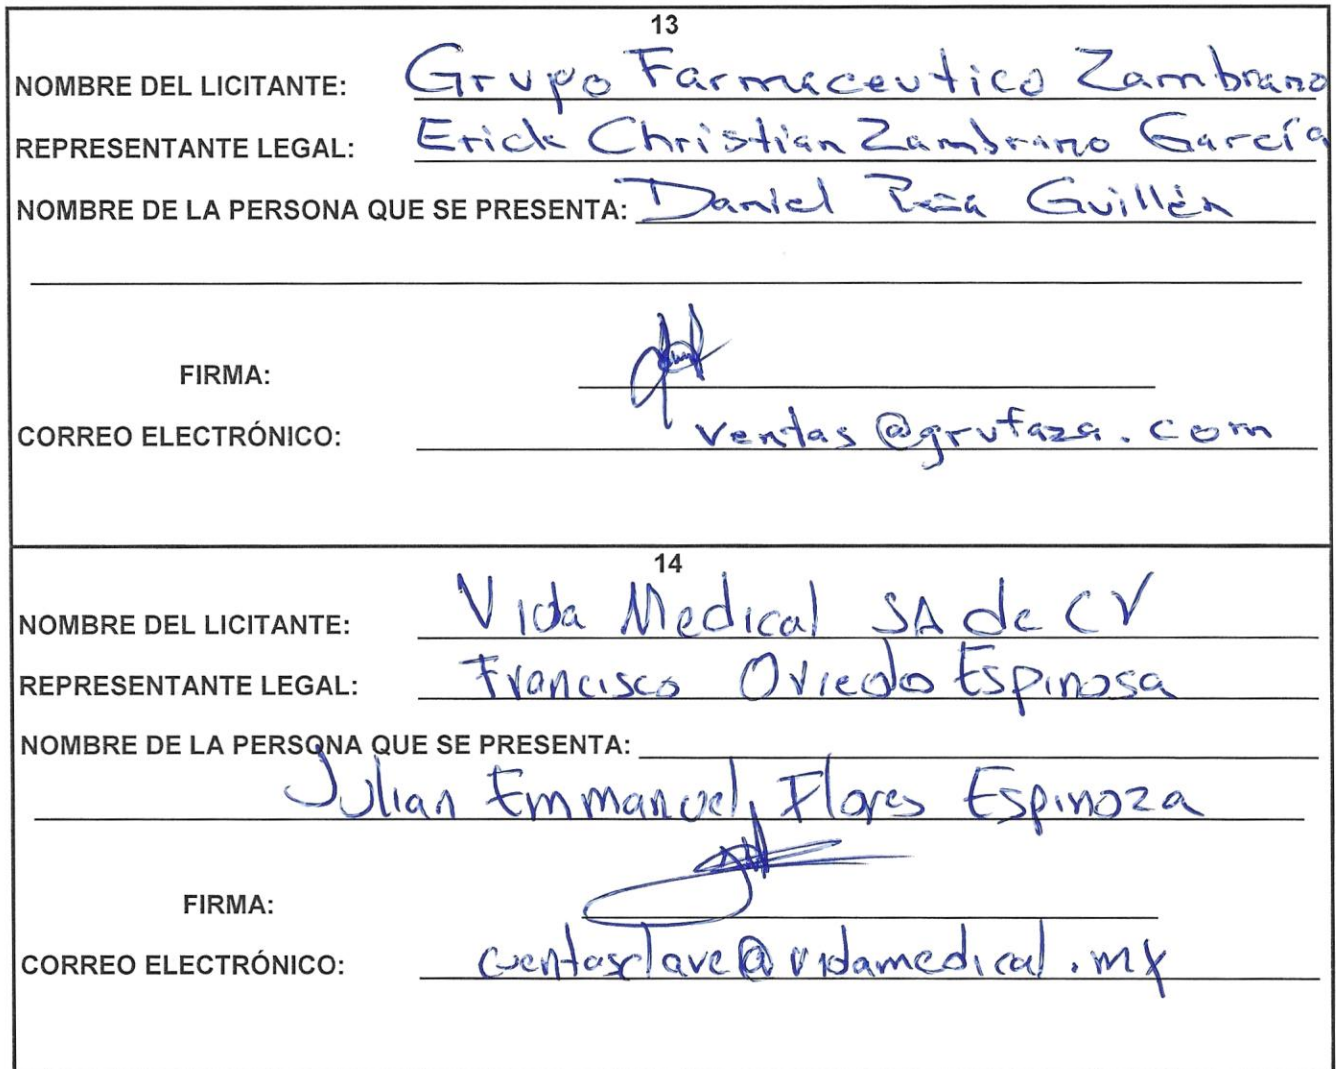 13
NOMBRE DEL LICITANTE: Grupo Farmaceutico Zambrano
REPRESENTANTE LEGAL: Erick Christian Zambrano García
NOMBRE DE LA PERSONA QUE SE PRESENTA: Daniel Guillén
FIRMA:
CORREO ELECTRÓNICO: ventas@grufaza.com
14
NOMBRE DEL LICITANTE: Vida Medical SA de CV
REPRESENTANTE LEGAL: Francisco Oviedo Espinosa
NOMBRE DE LA PERSONA QUE SE PRESENTA:
Julian Emmanuel Flores Espinoza
FIRMA:
CORREO ELECTRÓNICO: cuentasclave@vidamedical.mx